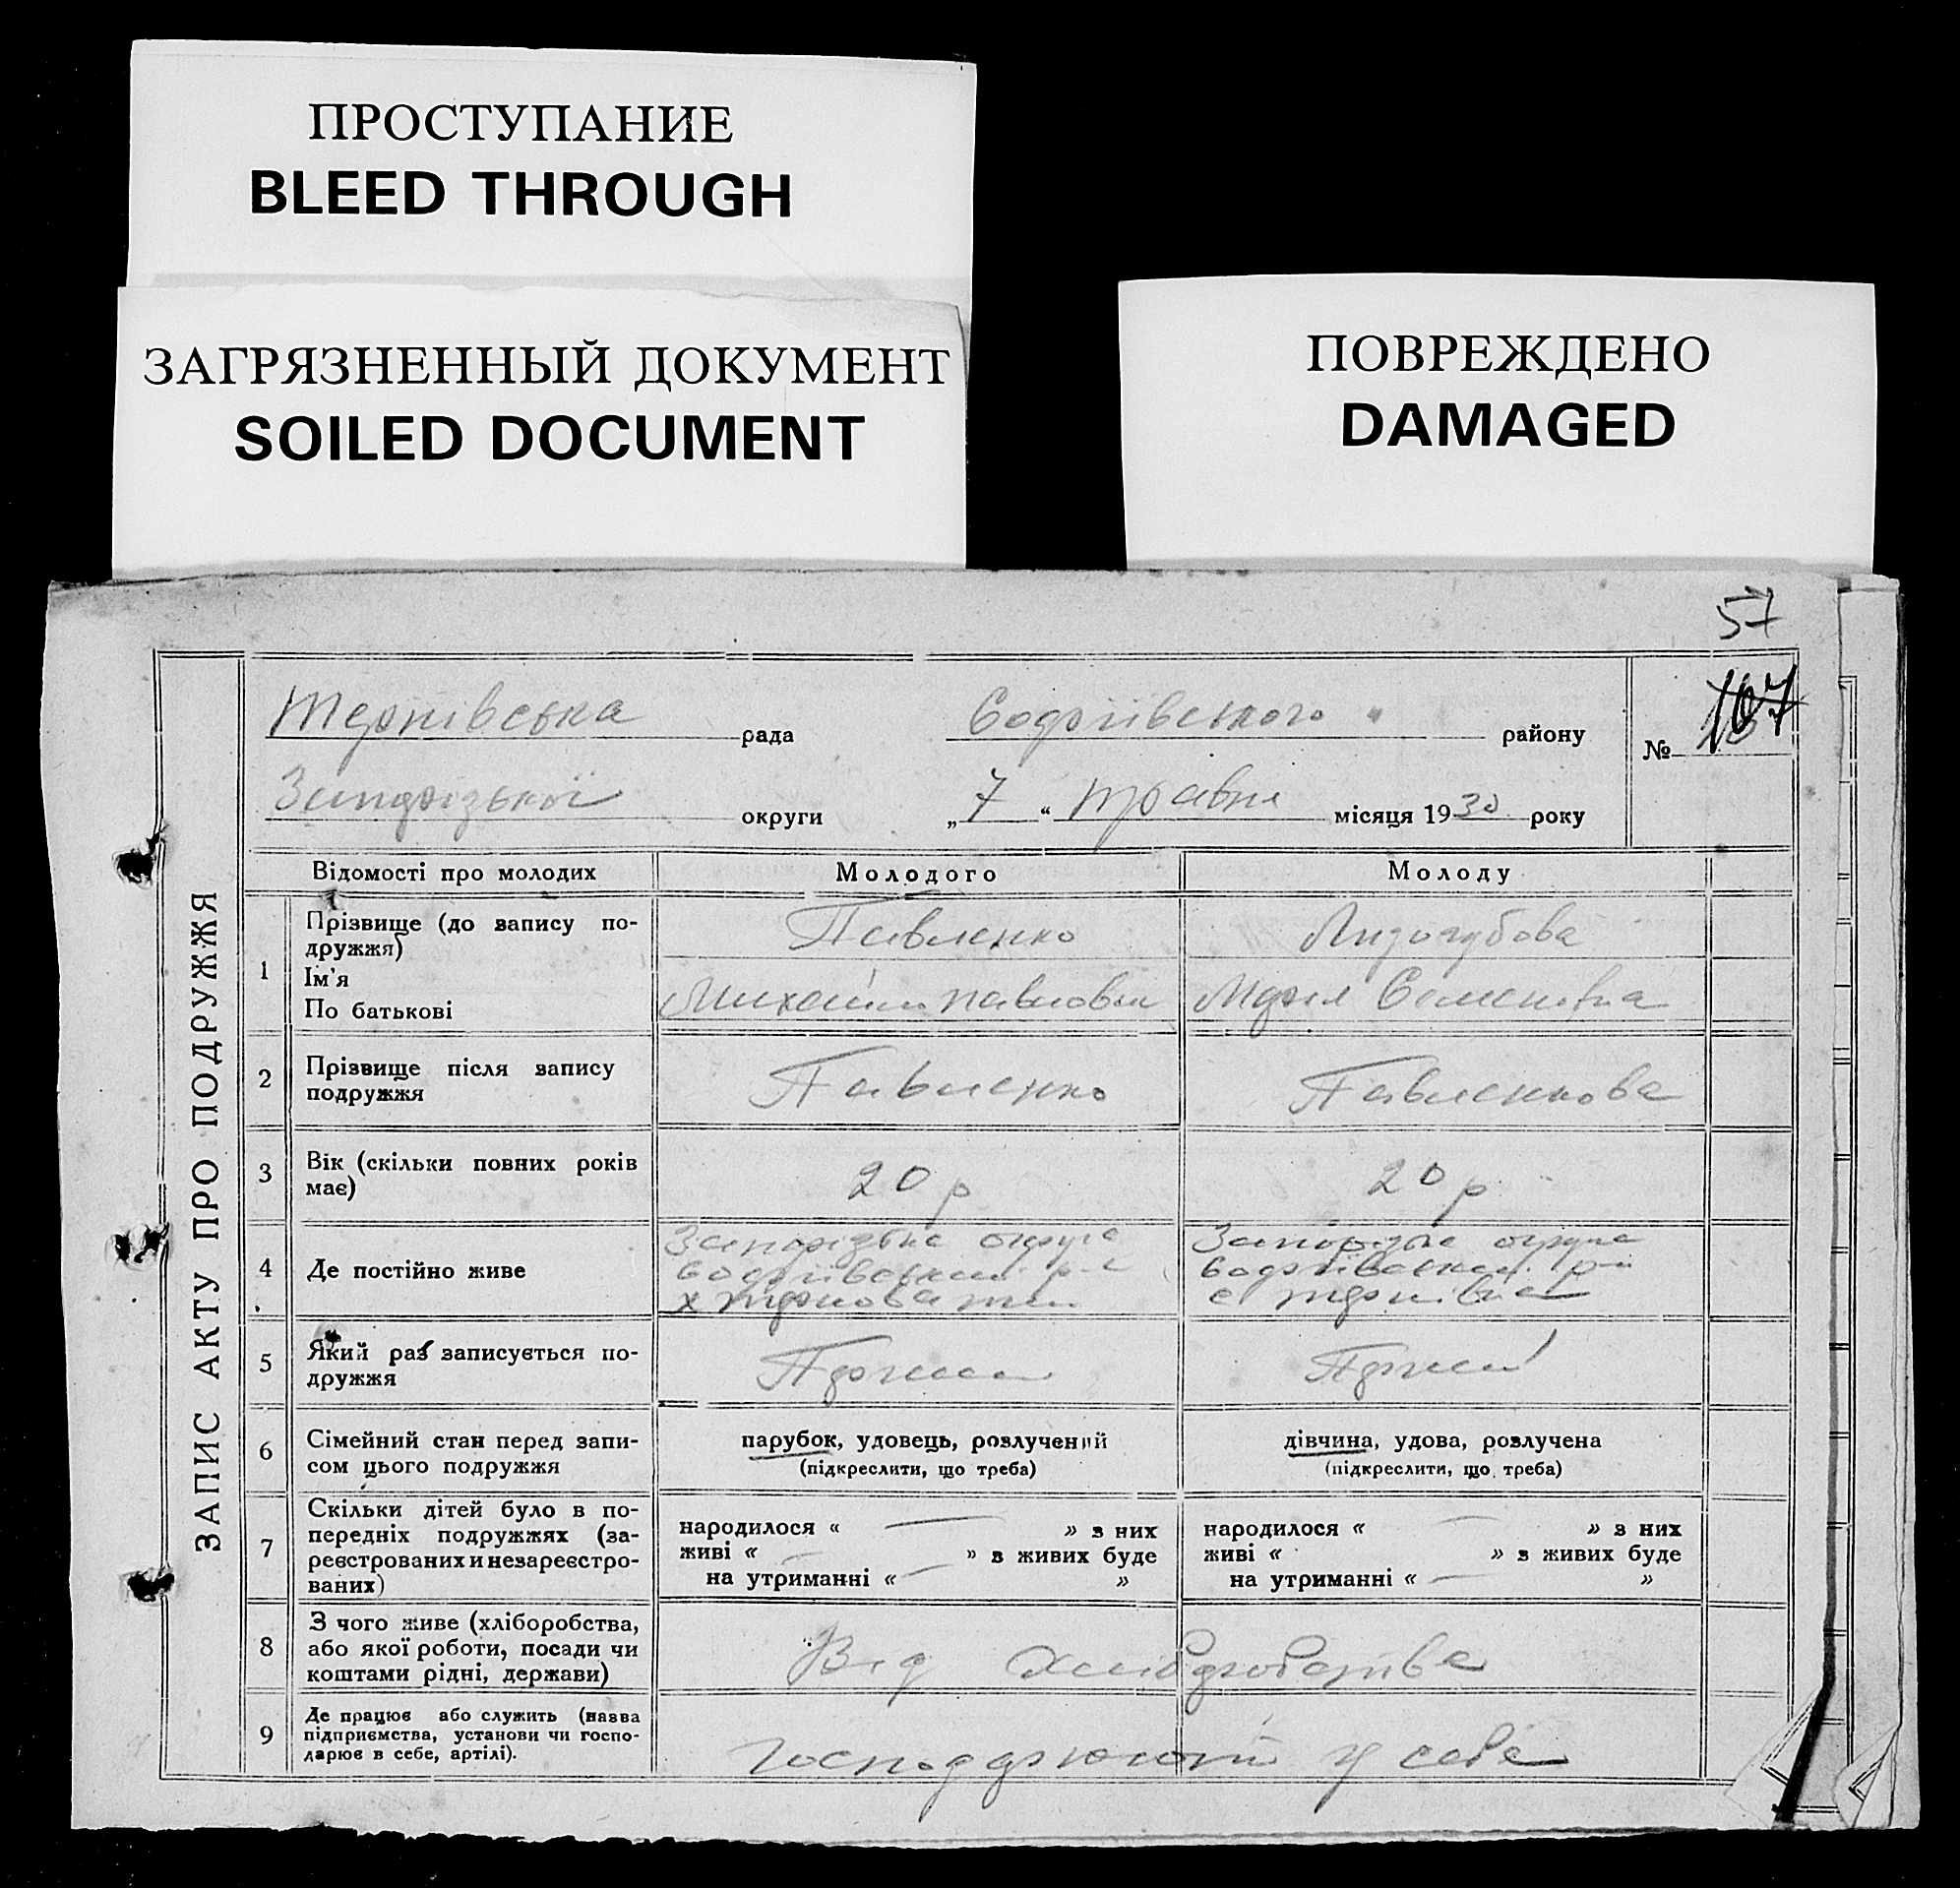 ПРОСТУПАНИЕ
BLEED THROUGH
ЗАГРЯЗНЕННЫЙ ДОКУМЕНТ
SOILED DOCUMENT
ПОВРЕЖДЕНО
DAMAGED
57
ЗАПИС АКТУ ПРО ПОДРУЖЖЯ
Тернівська рада Софіївського району
№ 107
Запорізької округи „ 7 “ травня місяця 1930 року
Відомості про молодих Молодого Молоду
1 Прізвище (до запису по-
дружжя)
Павленко Лизогубова
Ім'я
По батькові
Михайло Павлович Марія Семеновна
2 Прізвище після запису
подружжя
Павленко Павленкова
3 Вік (скільки повних років
має)
20 р 20 р
4 Де постійно живе
Запорізька округа
Софіївський р-н
х
Запорізька округа
Софіївський р-н
с Тернівка
5 Який раз записується по-
дружжя
Перший Перший
6 Сімейний стан перед запи-
сом цього подружжя
парубок, удовець, розлучений
(підкреслити, що треба)
дівчина, удова, розлучена
(підкреслити, що треба)
7 Скільки дітей було в по-
передніх подружжях (за-
реєстрованих и незареєстро-
ваних)
народилося « — » з них
живі « — » з живих буде
на утриманні « — »
народилося « — » з них
живі « » з живих буде
на утриманні « — »
8 З чого живе (хліборобства,
або якої роботи, посади чи
коштами рідні, держави)
Від хліборобства
9 Де працює або служить (назва
підприємства, установи чи госпо-
дарює в себе, артілі).
господарюють у себе